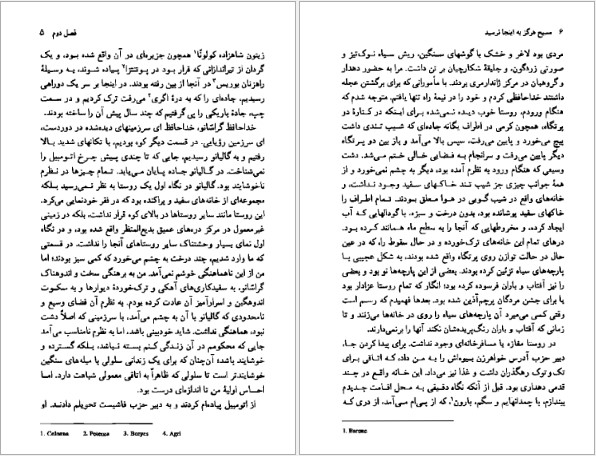 فصل دوم ۵
زینون شاهزاده کولونّا¹ همچون جزیره‌ای در آن واقع شده بود، و یک
گردان از تیراندازانی که قرار بود در پوتنتزا² پیاده شوند، به وسیلهٔ
راهزنان بوریس³ در آنجا از بین رفته بودند. در اینجا بر سر یک دوراهی
رسیدیم، جاده‌ای را که به درهٔ اگری⁴ می‌رفت ترک کردیم و در سمت
چپ، جادهٔ باریکی را پی گرفتیم که چند سال پیش آن را ساخته بودند.
خداحافظ گراسّانو، خداحافظ ای سرزمینهای دیده‌شده در دوردست،
ای سرزمین رؤیایی. در قسمت دیگر کوه بودیم، با تکانهای شدید بالا
رفتیم و به گالیانو رسیدیم، جایی که تا چندی پیش چرخ اتومبیل را
نمی‌شناخت. در گالیانو جاده پایان می‌یابد. تمام چیزها در نظرم
ناخوشایند بود. گالیانو در نگاه اول یک روستا به نظر نمی‌رسید بلکه
مجموعه‌ای از خانه‌های سفید و پراکنده بود که در فقر خودنمایی می‌کرد.
این روستا مانند سایر روستاها در بالای کوه قرار نداشت، بلکه در زمینی
غیرمعمول در مرکز دره‌های عمیق بدیع‌المنظر واقع شده بود، و در نگاه
اول نمای بسیار وحشتناک سایر روستاهای آنجا را نداشت. در قسمتی
که ما وارد شدیم، چند درخت به چشم می‌خورد که کمی سبز بودند؛ اما
من از این ناهماهنگی خوشم نمی‌آمد. من به برهنگی سخت و اندوهناک
گراسّانو، به سفیدکاری‌های آهکی و ترک‌خوردهٔ دیوارها و به سکوت
اندوهگین و اسرارآمیز آن عادت کرده بودم. به نظرم آن فضای وسیع و
نامحدودی که گالیانو با آن به چشم می‌آمد، با سرزمینی که اصلاً دشت
نبود، هماهنگی نداشت. شاید خودبینی باشد، اما به نظرم نامناسب می‌آمد
جایی که محکومم در آن زندگی کنم بسته نباشد، بلکه گسترده و
خوشایند باشد؛ آن‌چنان که برای یک زندانی سلولی با میله‌های سنگین
خوشایندتر است تا سلولی که ظاهراً به اتاقی معمولی شباهت دارد. اما
احساس اولیهٔ من تا اندازه‌ای درست بود.
از اتومبیل پیاده‌ام کردند و به دبیر حزب فاشیست تحویلم دادند. او
1. Colonna 2. Potenza 3. Boryes 4. Agri
۶ مسیح هرگز به اینجا نرسید
مردی بود لاغر و خشک با گوشهای سنگین، ریش سیاه نوک‌تیز و
صورتی زردگون، و جلیقهٔ شکارچیان بر تن داشت. مرا به حضور دهدار
و گروهبان در مرکز ژاندارمری بردند. با مأمورانی که برای برگشتن عجله
داشتند خداحافظی کردم و خود را در نیمهٔ راه تنها یافتم. متوجه شدم که
هنگام ورودم، روستا خوب دیده نمی‌شده برای اینکه در کنارهٔ دو
پرتگاه، همچون کرمی در اطراف یگانه جاده‌ای که شیب تندی داشت
پیچ می‌خورد و پایین می‌رفت، سپس بالا می‌آمد و باز بین دو پرتگاه
دیگر پایین می‌رفت و سرانجام به فضای خالی ختم می‌شد. دشت
وسیعی که هنگام ورود به نظرم آمده بود، دیگر به چشم نمی‌خورد و از
همهٔ جوانب چیزی جز شیب تند خاکهای سفید وجود نداشت، و
خانه‌های واقع در شیب گویی در هوا معلق بودند. تمام اطراف را
خاکهای سفید پوشانده بود، بدون درخت و سبزه، با گودالهایی که آب
ایجاد کرده، و مخروطهایی که آنها را به سطح ماه همانند کرده بود.
درهای تمام این خانه‌های ترک‌خورده و در حال سقوط را، که در عین
حال در حالت توازن روی پرتگاه واقع شده بودند، به شکل عجیبی با
پارچه‌های سیاه تزئین کرده بودند. بعضی از این پارچه‌ها نو بود و بعضی
را نیز آفتاب و باران فرسوده کرده بود؛ انگار که تمام روستا عزادار بود
یا برای جشن مردگان پرچم‌آذین شده بود. بعدها فهمیدم که رسم است
وقتی کسی می‌میرد آن پارچه‌های سیاه را روی در خانه‌ها می‌زنند و تا
زمانی که آفتاب و باران رنگ‌پریده‌شان نکند آنها را برنمی‌دارند.
در روستا مغازه یا مسافرخانه‌ای وجود نداشت. برای پیدا کردن جا،
دبیر حزب آدرس خواهرزن بیوه‌اش را به من داد، که اتاقی برای
تک‌وتوک رهگذران داشت و غذا نیز می‌داد. این خانه واقع در چند
قدمی دهداری بود. قبل از آنکه نگاه دقیقی به محل اقامت جدیدم
بیندازم، با چمدانهایم و سگم، بارون¹، که از پی‌ام می‌آمد، از دری که
1. Barone